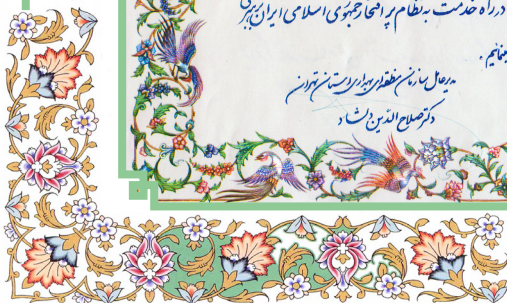 در راه خدمت به نظام پر افتخار جمهوری اسلامی ایران
مینمائیم .
مدیرعامل سازمان منطقه‌ای بهداری استان تهران
دکتر صلاح الدین دلشاد